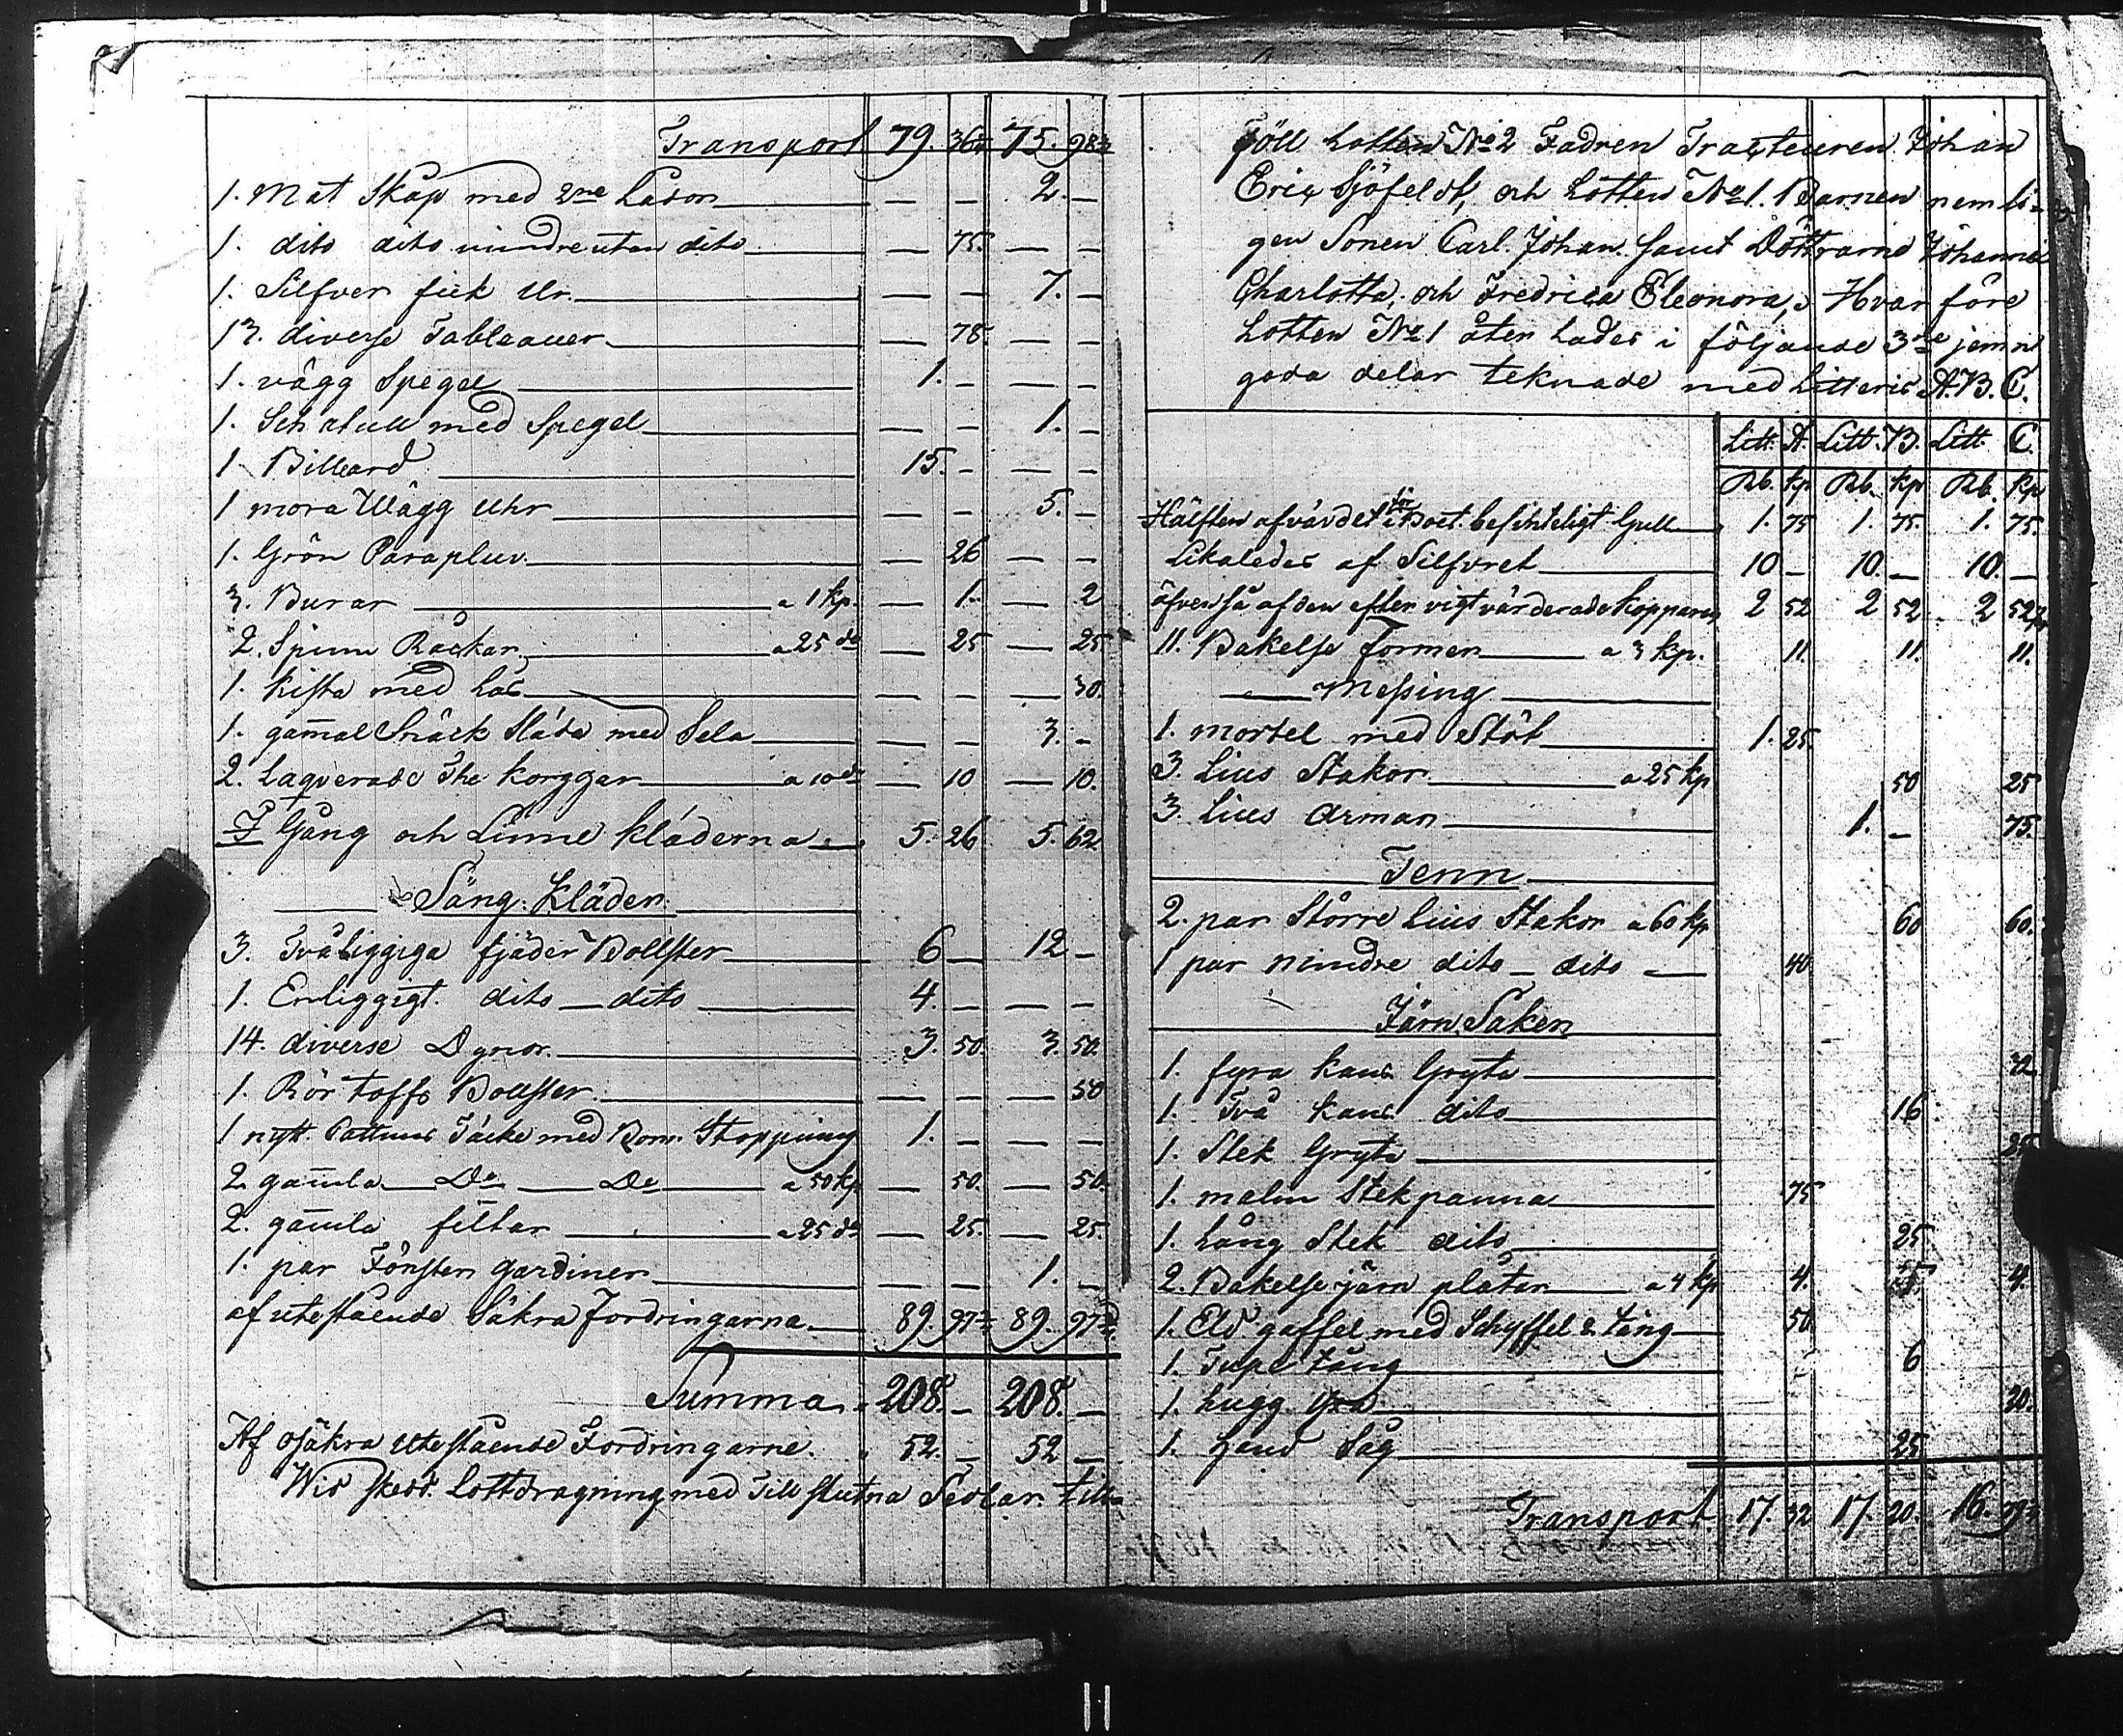 Transport 79. 36½ 75. 98½
1. Mat Skåp med 2ne Låsor — — 2. —
1. dito dito mindre utan dito — 75. — —
1. Silfver fick Ur. — — 7. —
13. diverse Tableauer — 78. — —
1. vägg Spegel 1. — — —
1. Schatull med Spegel — — 1. —
1 Billeard 15. — — —
1 mora Wägg Uhr — — 5. —
1. Grön Parapluv. — 26 — —
3. Burar a 1 kp. — 1. — 2
2. Spinn Råckar a 25 do — 25 — 25
1. kista med lås — — — 30.
1. gam̄al Snäck Släde med Sela — — 3. —
2. Laqverade The korggar a 10 do — 10 — 10.
Gång och Linne kläderna 5. 26 5. 62
Säng Kläder
3. Tvåliggiga fjäder Bollster 6 — 12 —
1. Enliggigt dito dito 4. — — —
14. diverse Dynor. 3. 50. 3. 50.
1. Rör toffs Bollster. — — — 50
1 nytt. Cattuns Täcke med Bom. Stoppning 1. — — —
2 gam̄la Do Do a 50 kp — 50. — 50.
2. gam̄la filtar a 25 do — 25. — 25.
1. par Fönster gardiner — — 1. —
af utestående Säkra Fordringarna 89. 97½ 89. 97½
Summa 208. — 208. —
Af osäkra Utestående Fordringarne. 52. — 52 —
Wid skedd Lottdragning med Tillslutna Sedlar till
föll Lotten No 2 Fadren Tracteuren Johan
Eric Sjöfeldt, och Lotten No 1. Barnen nemli-
gen Sonen Carl Johan Samt Döttrarne Johanna
Charlotta, och Fredrica Eleonora, Hvarföre
Lotten No 1 åter lades i följande 3ne jemn
goda delar teknade med Litteris A. B. C.
Litt. A Litt. B. Litt C.
Rb. kp Rb. kp Rb. kp
Hälften af värdet för i Boet befinteligt Gull 1. 75 1. 75. 1. 75.
Likaledes af Silfvret 10 — 10. — 10. —
äfven så af den efter vigt värderade kopparen 2 52 2 52. 2 52½
11. Bakelse former a 3 kp. 11. 11. 11.
Messing
1. mortel med Stöt 1. 25.
3. Lius Stakor a 25 kp 50 25
3. Lius Armar 1. — 75.
Tenn
2. par Större Lius Stakor a 60 kp 60 60.
1 par mindre dito dito 40
Järn Saker
1. fyra kans Gryta 32
1. Två kans dito 16
1. Stek Gryta 25
1. malm Stekpanna 75
1. Lång Stek dito 25
2. Bakelse järn plåtar a 4 kp 4. 4.
1. Eld gaffel med Schyffel & tång 50.
1. tång 6
1. hugg yxa 20.
1. Hand Såg 25
Transport. 17. 32 17. 20. 16. 79½